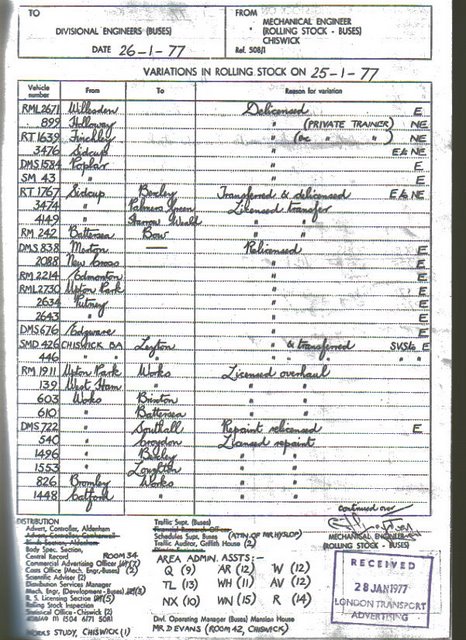 TO
DIVISIONAL ENGINEERS (BUSES)
DATE 26-1-77
FROM
MECHANICAL ENGINEER
(ROLLING STOCK - BUSES)
CHISWICK
Ref. 508/1
VARIATIONS IN ROLLING STOCK ON 25-1-77
Vehicle number From To Reason for variation
RML2671 Willesden Delicensed E
899 Holloway " (PRIVATE TRAINER) NE
RT 1639 Finchley " ( " " ) NE
3476 Sidcup " E & NE
DMS 1584 Poplar " E
SM 43 " " E
RT 1767 Sidcup Bexley Transferred & delicensed E & NE
3474 " Palmers Green Licensed transfer
4149 " Harrow Weald " "
RM 242 Battersea Bow " "
DMS 838 Merton — Relicensed E
2088 New Cross " E
RM 2214 Edmonton " E
RML2730 Upton Park " E
2634 Putney " E
2643 " " E
DMS 676 Edgware " E
SMD 426 CHISWICK BA Leyton " & transferred SVSLs E
446 " " " " " "
RM 1911 Upton Park Works Licensed overhaul
139 West Ham " " "
603 Works Brixton " "
610 " Battersea " "
DMS 722 " Southall Repaint relicensed E
540 " Croydon Licensed repaint
1496 " Bexley " "
1553 " Loughton " "
826 Bromley Works " "
1448 Catford " " "
continued over
MECHANICAL ENGINEER
(ROLLING STOCK - BUSES)
DISTRIBUTION
Advert. Controller, Aldenham
Body Spec. Section,
Central Record ROOM 34
Commercial Advertising Officer
Costs Office (Mech. Engr.-Buses) (2)
Scientific Adviser (2)
Distribution Services Manager
Mech. Engr. (Development-Buses)
R. S. Licensing Section
Rolling Stock Inspection
Statistical Office - Chiswick (2)
WORKS STUDY, CHISWICK (1)
Traffic Supt. (Buses)
Financial Research Officer
Schedules Supt. Buses (ATTN. OF MR. HYSLOP)
Traffic Auditor, Griffith House (2)
AREA ADMIN. ASSTS:-
Q (9) AR (12) W (12)
TL (13) WH (11) AV (12)
NX (10) WN (15) R (14)
Divl. Operating Manager (Buses) Mansion House
MR. D EVANS (ROOM 42, CHISWICK)
RECEIVED
28 JAN 1977
LONDON TRANSPORT
ADVERTISING